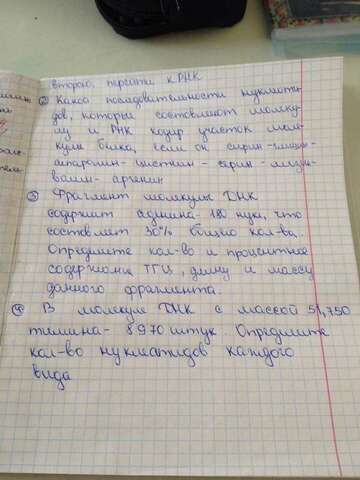 второго, перейти к РНК
② Какая последовательность нуклеоти-
дов, которые составляют молеку-
лу и РНК кодир участок моле-
кулы белка, если он серин-глицин-
аспарагин-цистеин-серин-лизин-
валин-аргенин
③ Фрагмент молекулы ДНК
содержит аденина-180 нукл, что
составляет 30% общего кол-ва.
Определите кол-во и процентное
содержание ТГЦ, длину и массу
данного фрагмента.
④ В молекуле ДНК с массой 51,750
тимина-8970 штук Определите
кол-во нуклеатидов каждого
вида